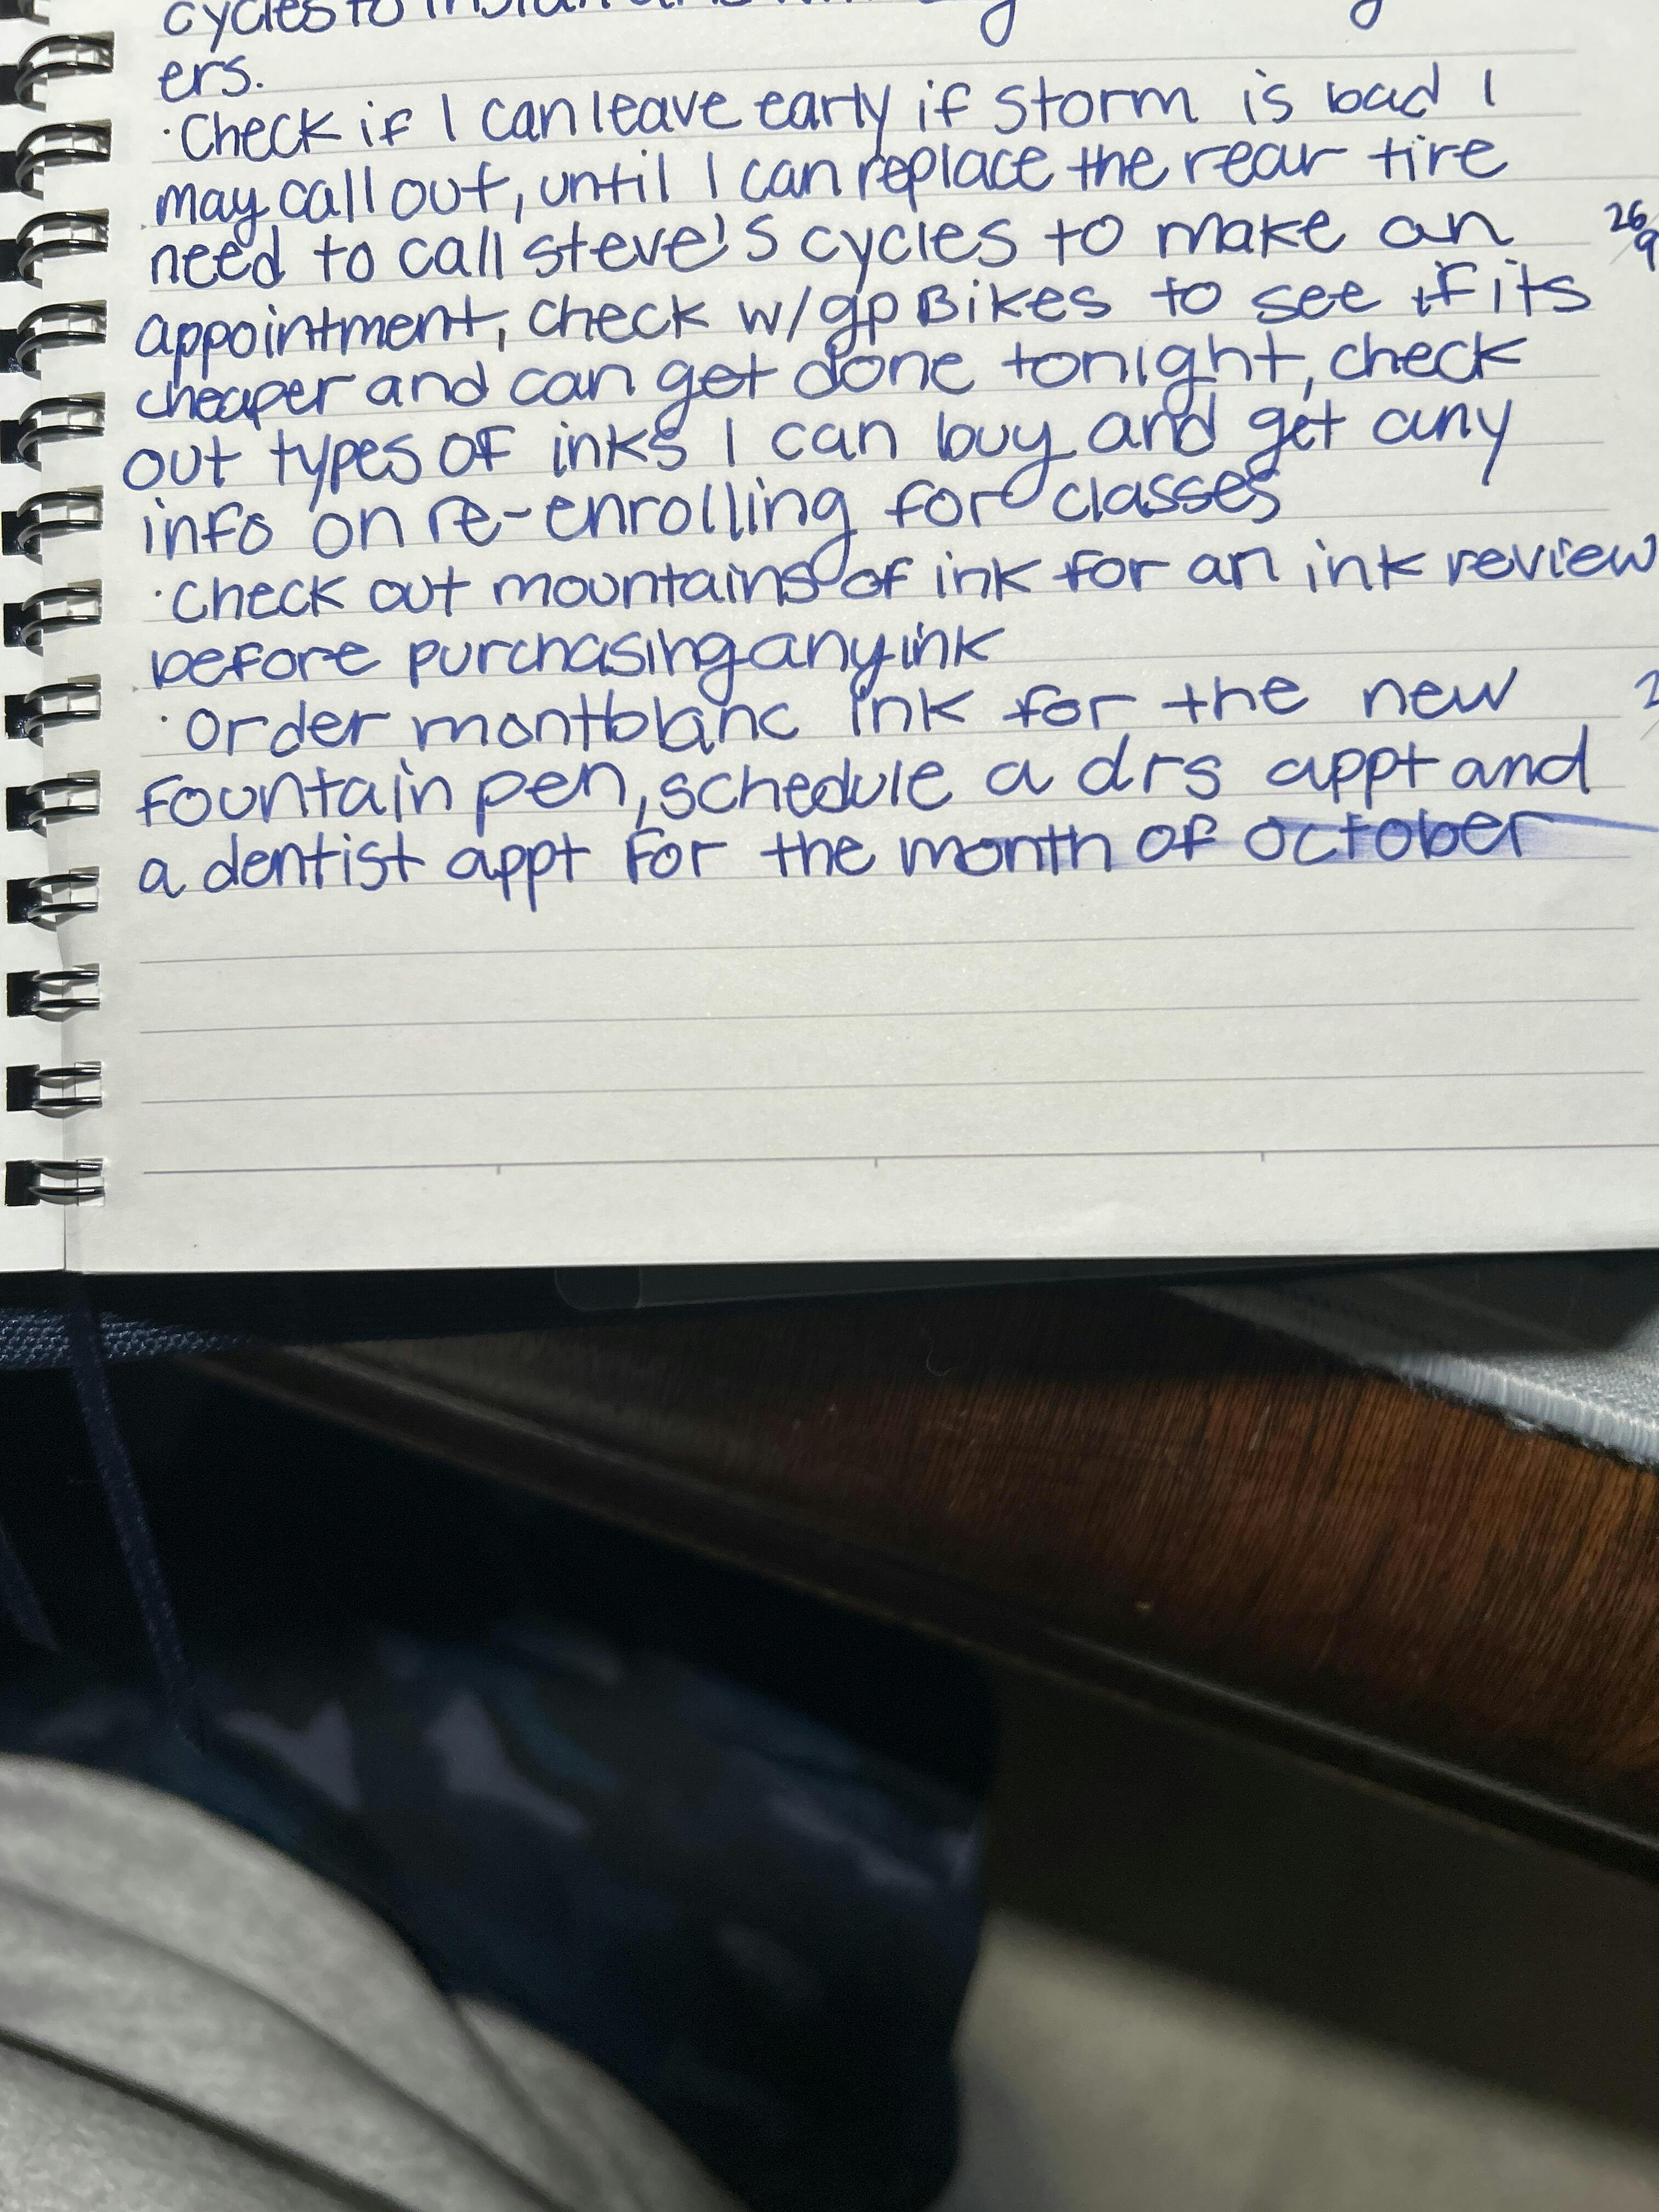 cycles to
ers.
· Check if I can leave early if storm is bad I
may call out, until I can replace the rear tire
need to call steve's cycles to make an
appointment, check w/gp Bikes to see if its
cheaper and can get done tonight, check
out types of inks I can buy and get any
info on re-enrolling for classes
· Check out mountains of ink for an ink review
before purchasing any ink
· Order montblanc ink for the new
fountain pen, schedule a drs appt and
a dentist appt for the month of october
26/9
2